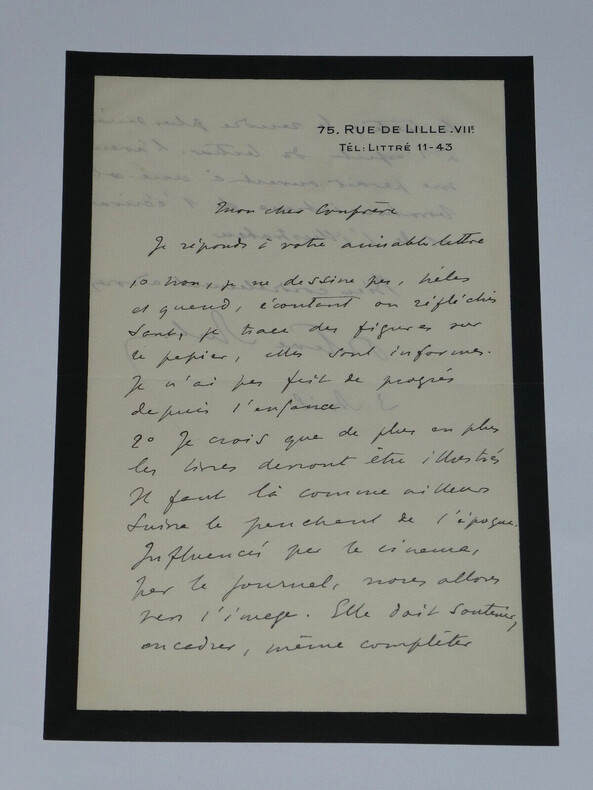 75, RUE DE LILLE .VIIE
TÉL: LITTRÉ 11-43
Mon cher Confrère
Je réponds à votre aimable lettre
1o Non, je ne dessine pas, hélas
et quand, écoutant ou réfléchis
sant, je trace des figures sur
le papier, elles sont informes.
Je n'ai pas fait de progrès
depuis l'enfance
2o Je crois que de plus en plus
les livres devront être illustrés
Il faut là comme ailleurs
suivre le penchant de l'époque.
Influencés par le cinema,
par le journal, nous allons
vers l'image. Elle doit soutenir,
encadrer, même compléter